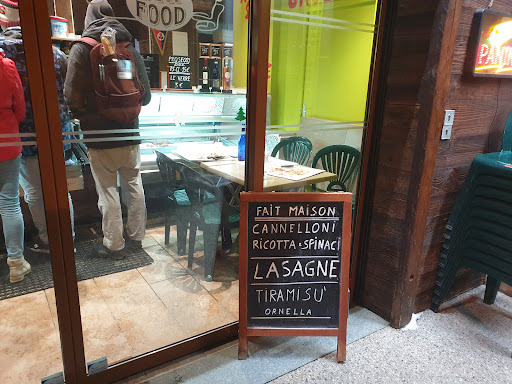 FOOD
PROSECCO
LE VERRE
3€
FAIT MAISON
CANNELLONI
RICOTTA E SPINACI
LASAGNE
TIRAMISU'
ORNELLA